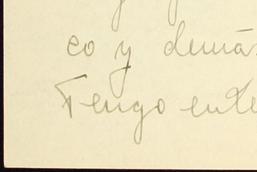 co y demás
Tengo ente